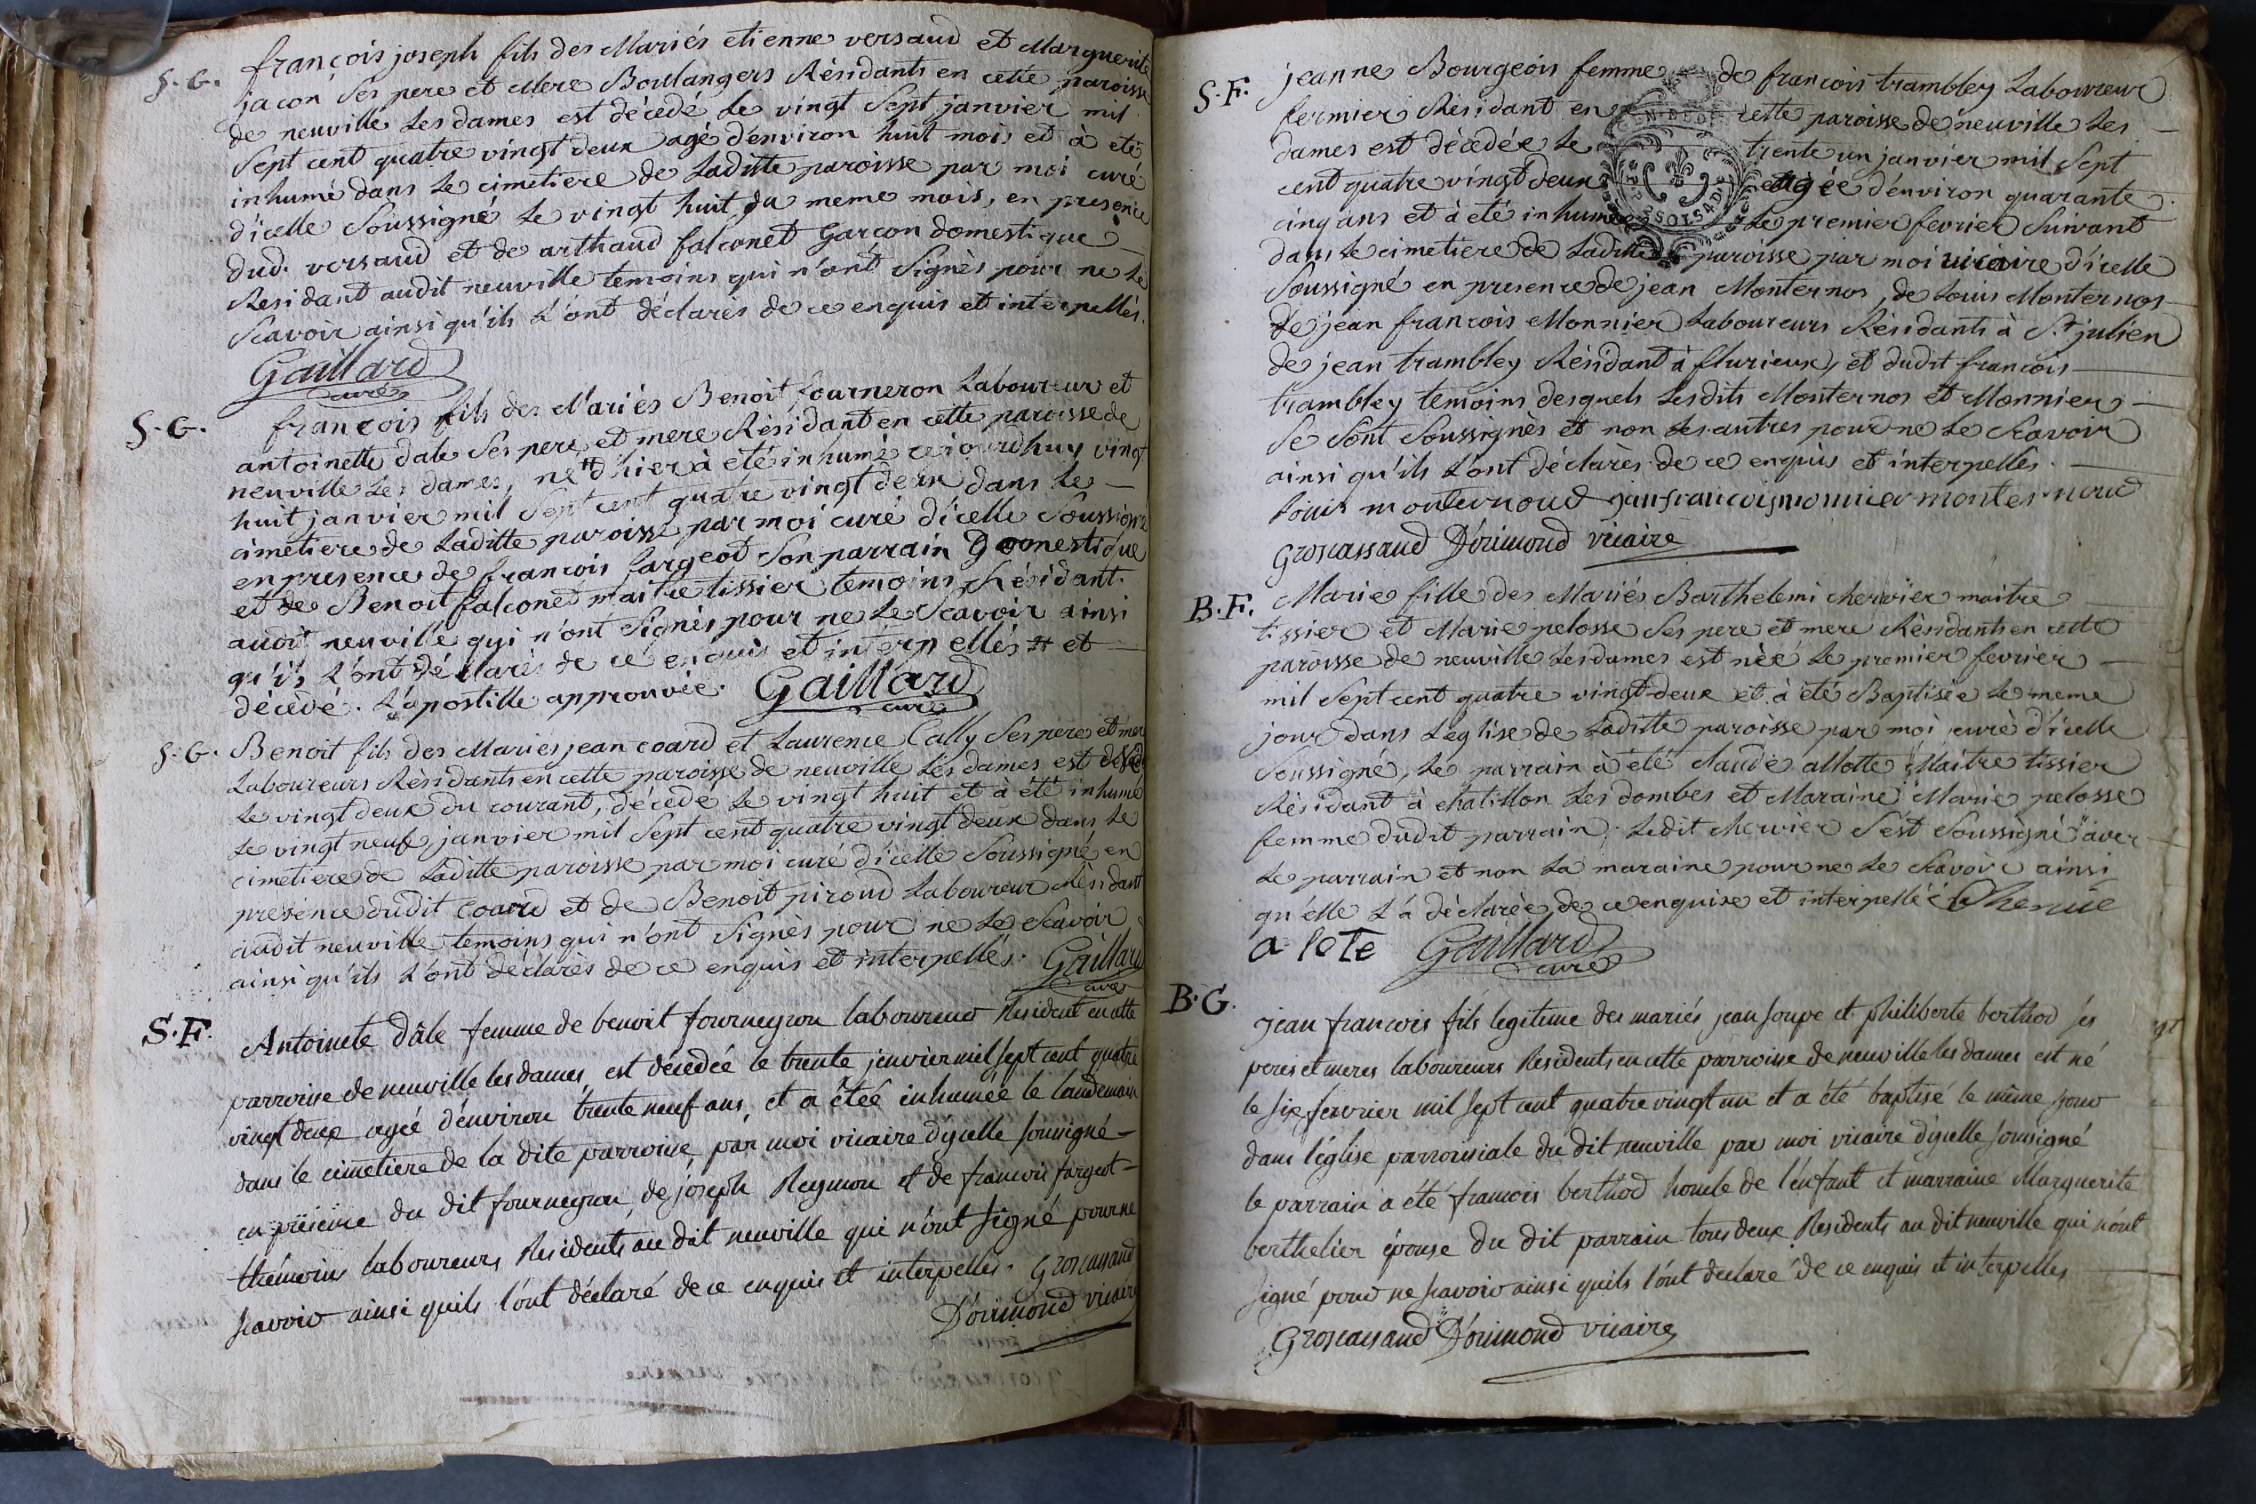 S.G. françois joseph fils des Mariés etienne versaud et Marguerite
jacon Ses pere et Mere Boulangers Résidants en cette paroisse
de neuville Les dames est décedé Le vingt Sept janvier mil
Sept cent quatre vingt deux agé d'environ huit mois et à eté
inhumé dans Le cimetiere de Laditte paroisse par moi curé
d'icelle Soussigné Le vingt huit du meme mois, en presence
dud. versaud et de arthaud falconet Garçon domestique
Residant audit neuville temoins qui n'ont Signés pour ne Le
Scavoir ainsi qu'ils L'ont déclarés de ce enquis et interpellés.
Gaillard
curé
S.G. françois fils des Mariés Benoit fourneron Laboureur et
antoinette dale Ses pere et mere Résidant en cette paroisse de
neuville Les dames, né # d'hier à eté inhumé cejourdhuy vingt
huit janvier mil Sept cent quatre vingt deux dans Le
cimetiere de Laditte paroisse par moi curé d'icelle Soussigné
en presence de francois fargeot Son parrain Domestique
et de Benoit falconet maitre tissier temoins Résidant
audit neuville qui n'ont Signés pour ne Le Scavoir ainsi
qu'ils L'ont déclarés de ce enquis et interpellés # et
décedé. L'apostille approuvée. Gaillard
curé
S.G. Benoit fils des Mariés jean coard et Laurence Cally Ses pere et mere
Laboureurs Résidants en cette paroisse de neuville Les dames est
Le vingt deux du courant, décedé Le vingt huit et à été inhumé
Le vingt neuf janvier mil Sept cent quatre vingt deux dans Le
cimetiere de Laditte paroisse par moi curé d'icelle Soussigné en
presence dudit coard et de Benoit piroud Laboureur Résidant
audit neuville temoins qui n'ont Signés pour ne Le Scavoir
ainsi qu'ils L'ont déclarés de ce enquis et interpellés. Gaillard
curé
S.F. Antoinete dâle femme de benoit fourneyron laboureur Resident en cette
parroisse de neuville les dames est décedée le trente jenvier mil sept cent quatre
vingt deux agée d'environ trente neuf ans, et a étée inhumée le landemain
dans le cimetiere de la dite parroisse par moi vicaire d'ycelle soussigné
en présence du dit fourneyron, de joseph Reymon et de francois fargeot
thémoins laboureurs Residents au dit neuville qui n'ont signé pour ne
scavoir ainsi quils l'ont déclaré de ce enquis et interpellés. Groscassaud
D'orimond vicaire
S.F. jeanne Bourgeois femme de françois trambley Laboureur
fermier Résidant en cette paroisse de neuville Les
dames est décedée Le trente un janvier mil Sept
cent quatre vingt deux agée d'environ quarante
cinq ans et à eté inhumée Le premier fevrier Suivant
dans Le cimetiere de Laditte paroisse par moi vicaire d'icelle
Soussigné en presence de jean Monternos, de Louis Monternos
de jean francois Monnier Laboureurs Résidants à St. julien
de jean trambley Résidant à flurieux, et dudit francois
trambley temoins desquels Lesdits Monternos et Monnier
Se Sont Soussignés et non Les autres pour ne Le Scavoir
ainsi qu'ils L'ont déclarés de ce enquis et interpellés.
Louis monternoud jean francois monnier monternoud
Groscassaud D'orimond vicaire
B.F. Marie fille des Mariés Barthelemi chervier maitre
tissier et Marie pelosse Ses pere et mere Résidants en cette
paroisse de neuville Les dames est née Le premier fevrier
mil Sept cent quatre vingt deux et à été Baptisée Le meme
jour dans L'eglise de Laditte paroisse par moi curé d'icelle
Soussigné, Le parrain à été claude allotte Maitre tissier
Résidant à chatillon Les dombes et Maraine Marie pelosse
femme dudit parrain; Ledit chervier S'est Soussigné avec
Le parrain et non La maraine pour ne Le Scavoir ainsi
qu'elle L'à déclarée de ce enquise et interpellée
a lote Gaillard
curé
B.G. jean francois fils legitime des mariés jean soupe et philiberte berthod ses
peres et meres laboureurs Residents en cette parroisse de neuville les dames est né
le six fevrier mil sept cent quatre vingt un et a été baptisé le même jour
dans l'église parroissiale du dit neuville par moi vicaire d'ycelle soussigné
le parrain a été francois berthod honcle de l'enfant et marraine Marguerite
berthelier épouse du dit parrain tous deux Residents au dit neuville qui n'ont
signé pour ne scavoir ainsi quils l'ont déclaré de ce enquis et interpellés
Groscassaud D'orimond vicaire